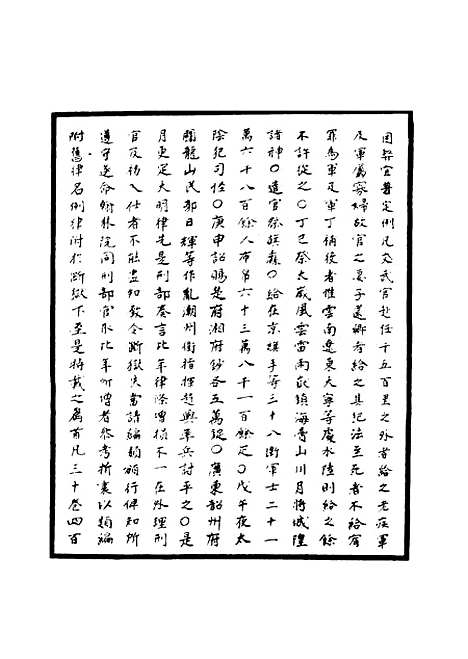 因弊宜著定例凡文武官赴任千五百里之外者給之老疾軍
及軍屬寡婦故官之妻子還鄉者給之其犯法至死者不給宥
罪為軍及軍丁補役者惟雲南遼東大寧等處水陸則給之餘
不許從之○丁巳祭太歲風雲雷雨嶽鎮海瀆山川月將城隍
諸神○遣官祭旗纛○給在京旗手等三十八衛軍士二十一
萬六千八百餘人布帛六十三萬八千一百餘疋○戊午夜太
陰犯司怪○庚申詔賜是府湘府鈔各五萬錠○廣東韶州府
顒龍山民郭日輝等作亂潮州衛指揮趙興率兵討平之○是
月更定大明律先是刑部奏言比年律條增損不一在外理刑
官及初入仕者不能盡知致令斷獄失當請編類頒行俾知所
遵守遂命翰林院同刑部官取比年所增者參考折衷以類編
附舊律名例律附於斷獄下至是特載之篇首凡三十卷四百